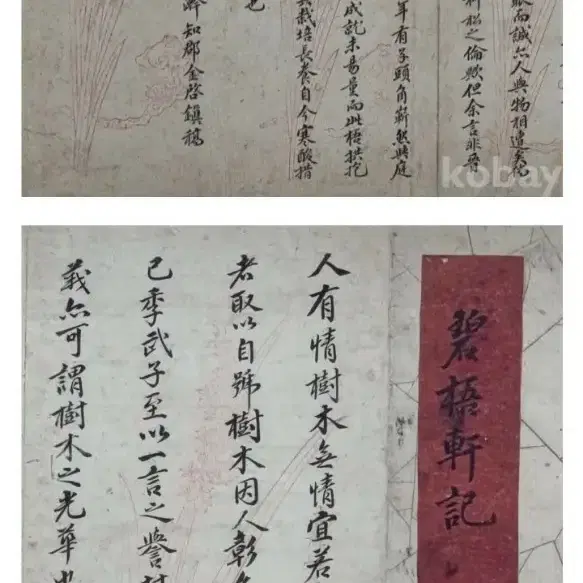 而誠亦人與物相遭矣
松之倫歟但余言非晉
年有子頭角嶄然時庭
成就未易量而此梧拱
栽培長養自今寒酸措
也
知郡金啓鎭稿
kobay
碧梧軒記
人有情樹木無情宜若
者取以自號樹木因人彰
已季武子至以一言之譽
義亦可謂樹木之光華也